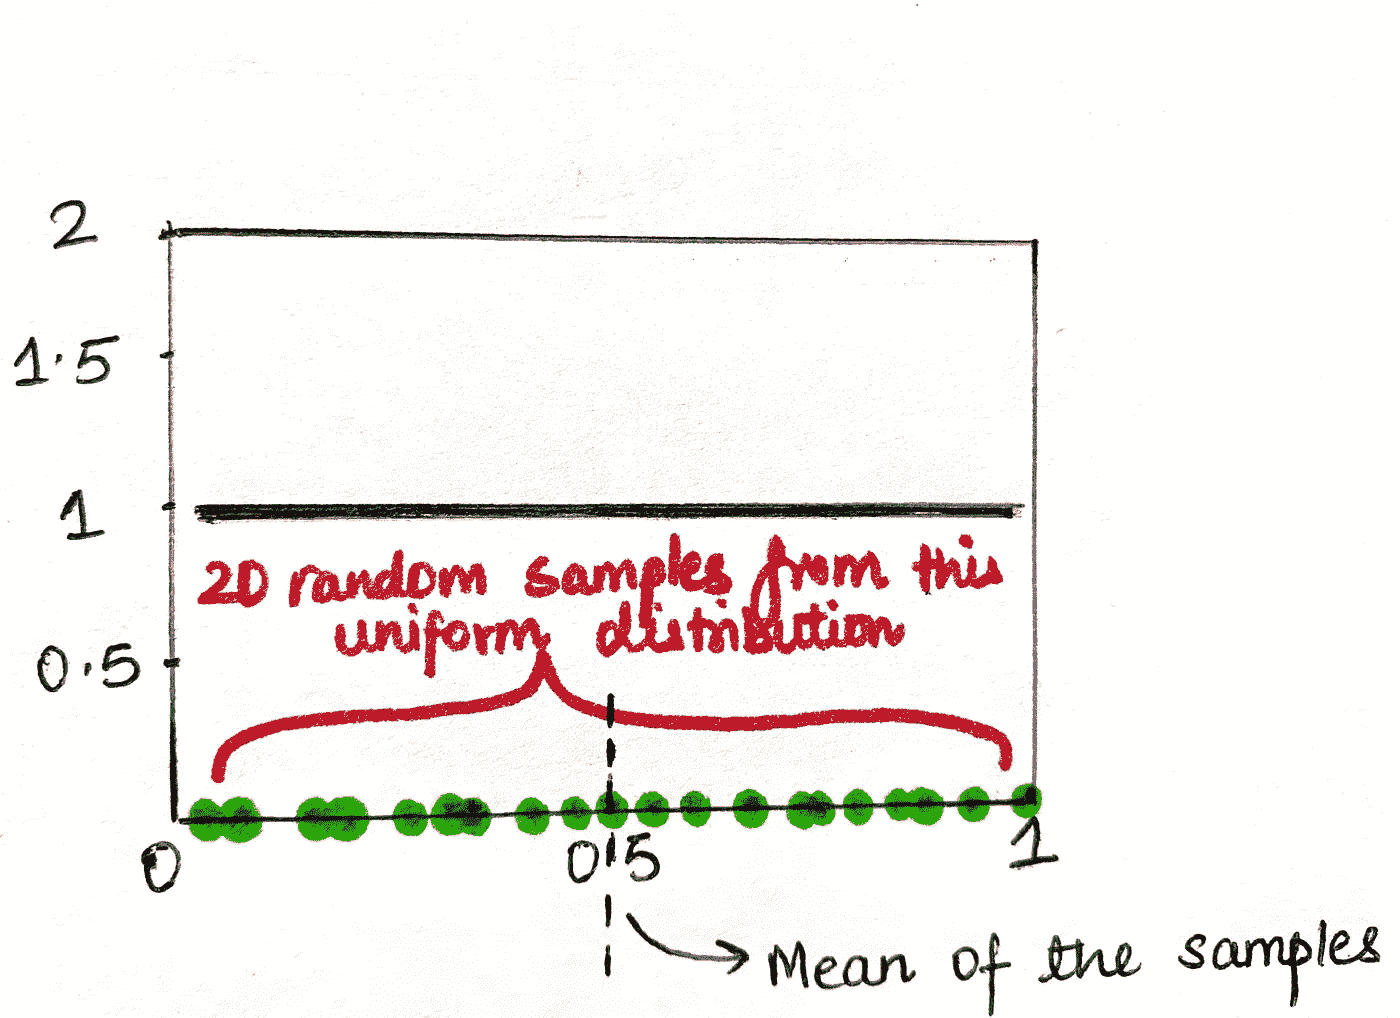 2
1.5
1
20 random samples from this
uniform distribution
0.5
0
0.5
1
Mean of the samples